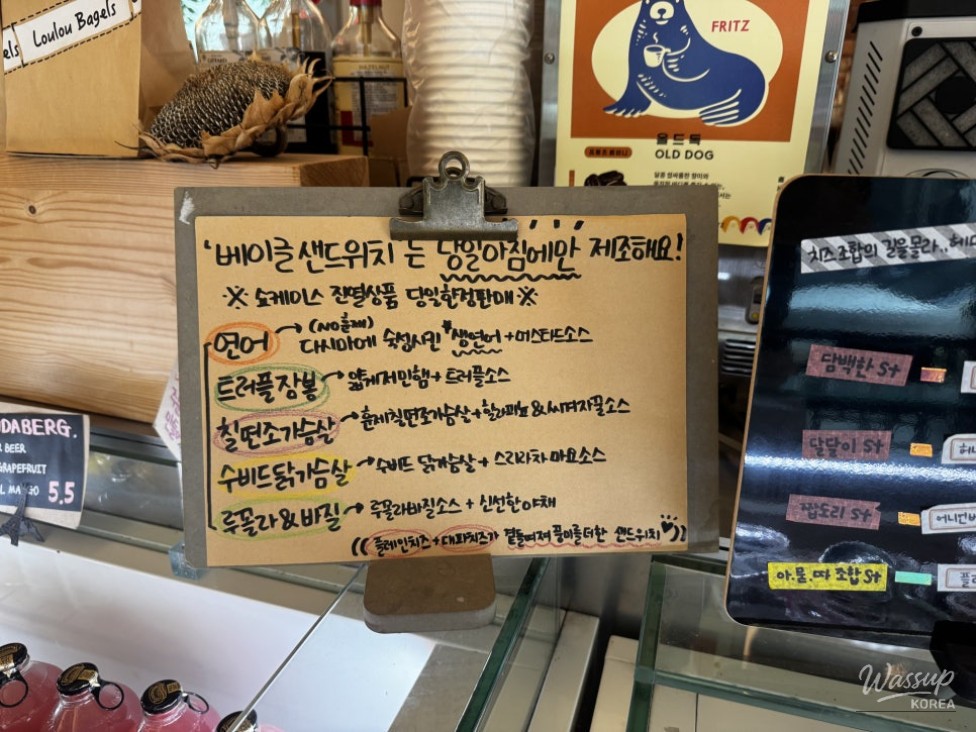 Loulou Bagels
FRITZ
올드독
OLD DOG
'베이글샌드위치'는 당일아침에만 제조해요!
※ 쇼케이스 진열상품 당일한정판매 ※
연어 → (NO훈제) 다시마에 숙성시킨 *생연어 + 머스타드소스
트러플잠봉 → 얇게저민햄 + 트러플소스
칠면조가슴살 → 훈제칠면조가슴살 + 할라피뇨 & 씨겨자꿀소스
수비드닭가슴살 → 수비드 닭가슴살 + 스리라차 마요소스
루꼴라&바질 → 루꼴라바질소스 + 신선한야채
((플레인치즈 + 대파치즈가 곁들여져 풍미를더한 샌드위치))
치즈조합의 길을몰라..
담백한 S+
달달이 S+
짭도리 S+
아.묻.따 조합 S+
DABERG.
BEER
GRAPEFRUIT
5.5
Wassup
KOREA